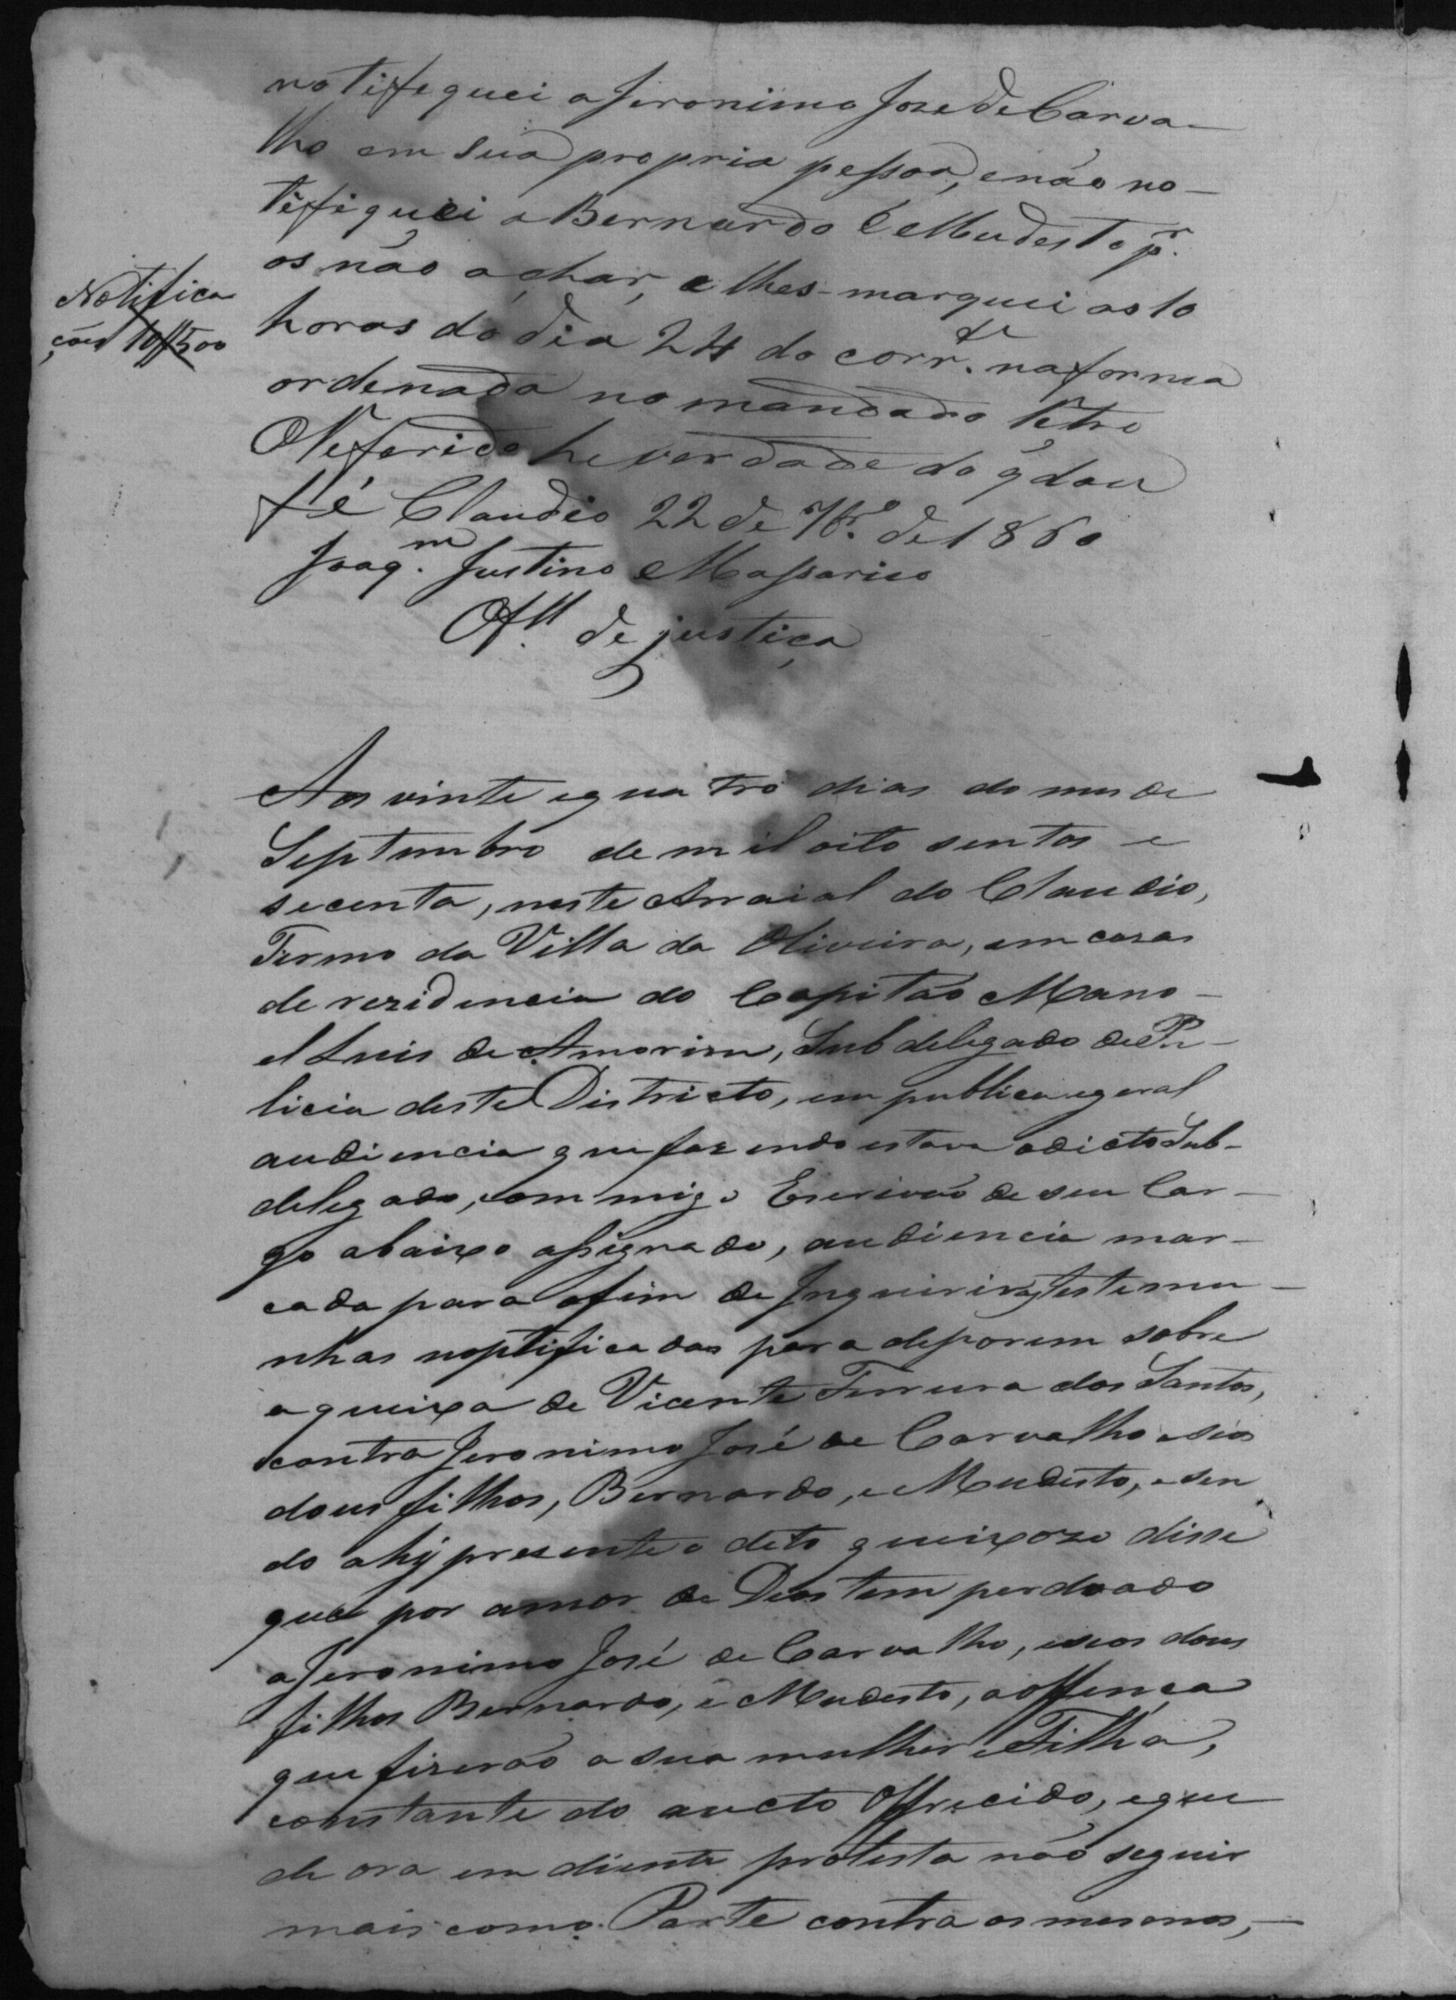 notifequei a Jeronimo Jose de Carva-
lho em sua propria pessoa, e não no-
tifiquei a Bernardo e Mudesto pr.
os não achar, e lhes marquei as 10
horas do dia 24 do corr.te na forma
ordenada no mandado Retro
O Referido he verdade do q̃ dou
fé Claudio 22 de 7br.o de 1860
Joaq.m Justino Massarico
Off.al de justiça
Notifica
ções 10$500
Aos vinte e quatro dias do mes de
Septembro de mil oito sentos e
secenta, neste Arraial do Claudio,
Termo da Villa da Oliveira, em casas
de rezidencia do Capitão Mano-
el Luis de Amorim, Subdelegado de Pu-
licia deste Districto, em publica e geral
audiencia que fazendo estava o dicto Sub-
delegado, commigo Escrivão de seu Car-
go abaixo assignado, audiencia mar-
cada para o fim de Inquirir testemu-
nhas noptificadas para deporem sobre
a queixa de Vicente Ferreira dos Santos,
contra Jeronimo José de Carvalho e seos
dous filhos, Bernardo, e Mudesto, e sen
do ahy presente o dito queixozo disse
que por amor de Deos tem perdoado
a Jeronimo José de Carvalho, e seos dous
filhos Bernardo, e Mudesto, a offença
que fizerão a sua mulher e Filha,
constante do aucto Offrecido, e que
de ora em diente protesta não seguir
mais como Parte contra os mesmos,